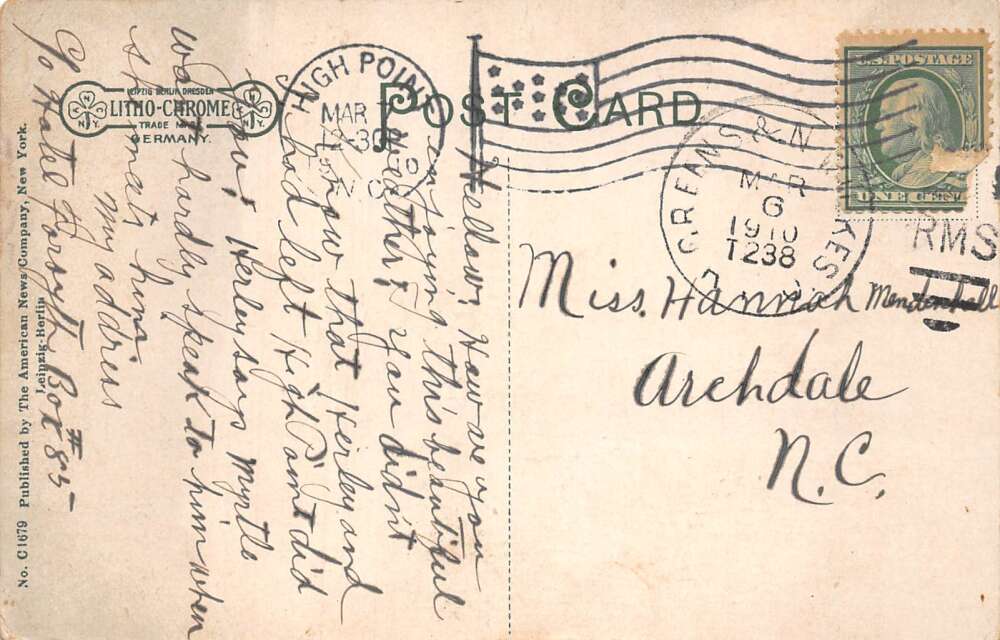 POST CARD
LEIPZIG BERLIN DRESDEN
LITHO-CHROME
TRADE MARK
GERMANY.
N
N.Y.
N
N.Y.
HIGH POINT
MAR 7
12-30
1910
N.C.
GREENS. & N. WILKES
MAR
6
1910
T238
RMS
U.S. POSTAGE
ONE CENT
Miss. Hannah Mendenhall
Archdale
N.C.
Hellow, How've you
enjoying this beautiful
weather? you didn't
know that Herley and
I had left High Point did
you? Herley says Myrtle
would hardly speak to him when
she was home.
My address
C/o Hotel Forsyth Box #85-
No. C1679 Published by The American News Company, New York.
Leipzig-Berlin